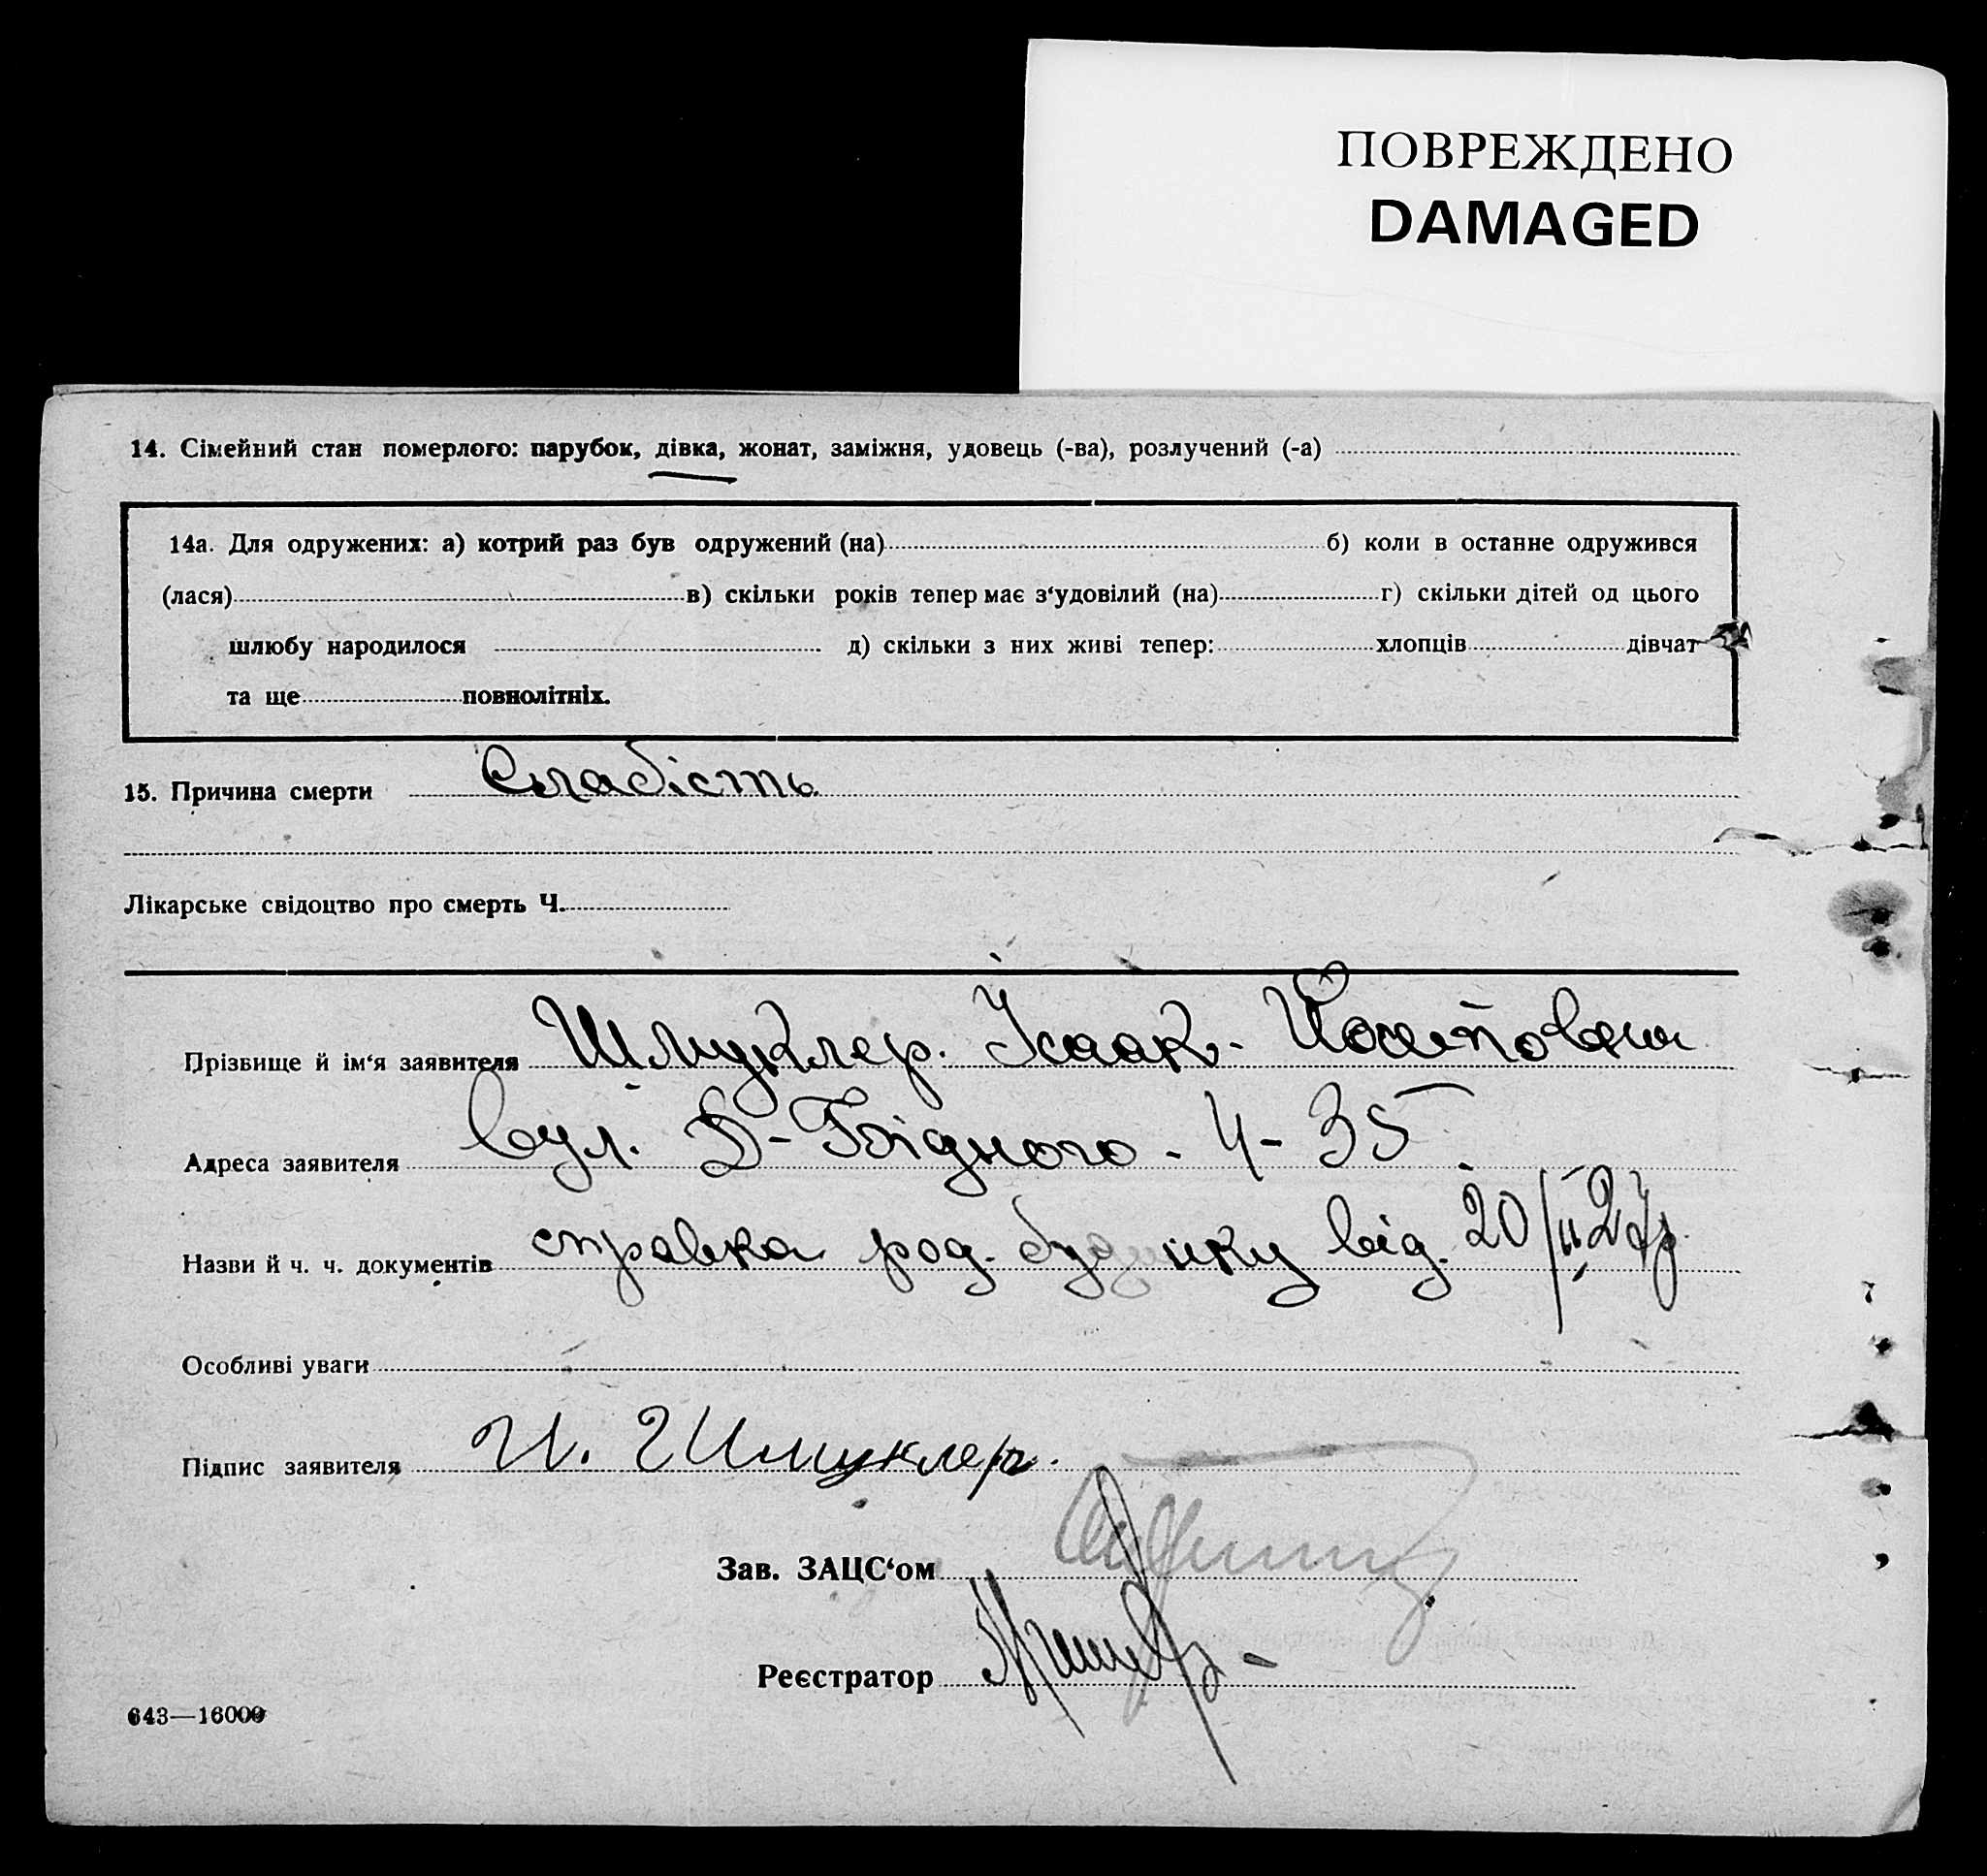 ПОВРЕЖДЕНО
DAMAGED
14. Сімейний стан померлого: парубок, дівка, жонат, заміжня, удовець (-ва), розлучений (-а)
14а. Для одружених: а) котрий раз був одружений (на) б) коли в останне одружився
(лася) в) скільки років тепер має з‘удовілий (на) г) скільки дітей од цього
шлюбу народилося д) скільки з них живі тепер: хлопців дівчат
та ще повнолітніх.
15. Причина смерти Слабість
Лікарське свідоцтво про смерть Ч.
Прізвище й ім‘я заявителя Шмуклер. Ісаак-
Адреса заявителя вул. Д-Бідного - 4-35
Назви й ч. ч. документів справка род. будинку від. 20/II 27р.
Особливі уваги
Підпис заявителя И. Шмуклер.
Зав. ЗАЦС‘ом
Реєстратор
643—16000